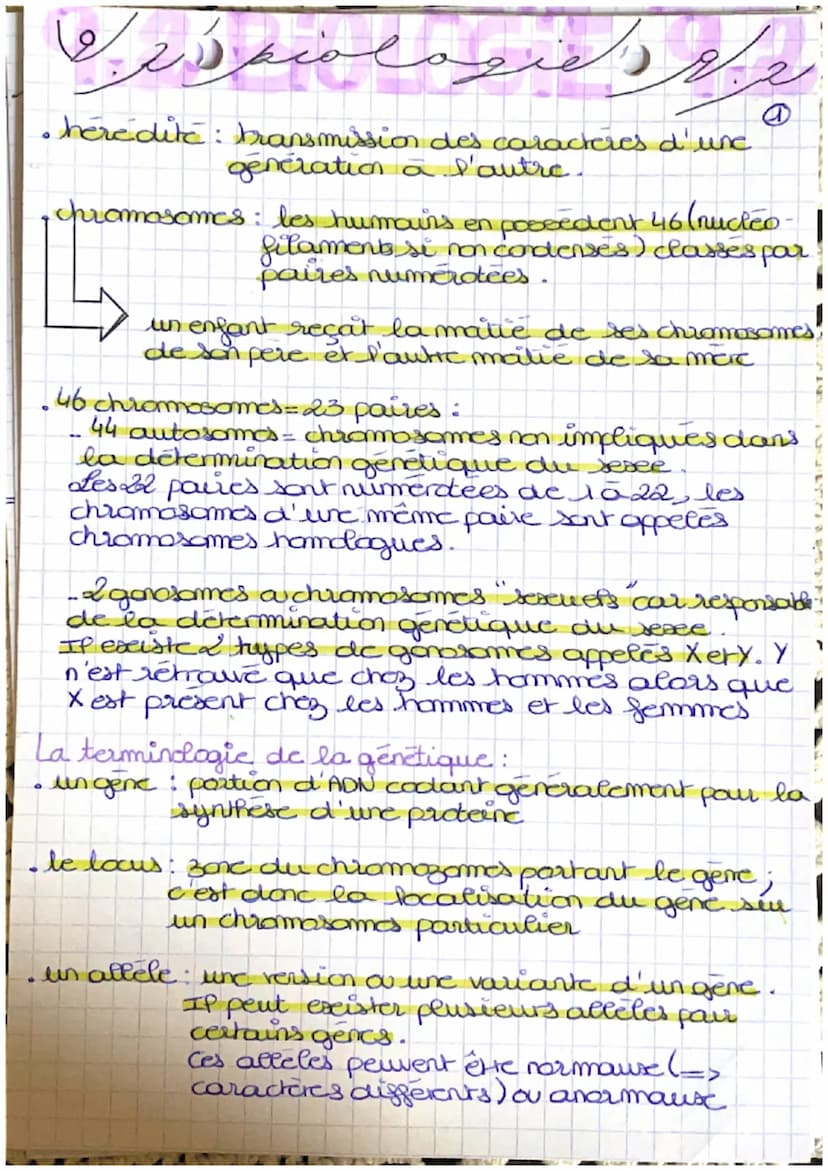 9.2 biologie 9.2
①
. hérédité : transmission des caractères d'une
génération à l'autre.
. chromosomes : les humains en possèdent 46 (nucléo-
filaments si non condensés) classés par
paires numérotées.
un enfant reçoit la moitié de ses chromosomes
de son père et l'autre moitié de sa mère
. 46 chromosomes = 23 paires :
- 44 autosomes = chromosomes non impliqués dans
la détermination génétique du sexe.
Les 22 paires sont numérotées de 1 à 22, les
chromosomes d'une même paire sont appelés
chromosomes homologues.
- 2 gonosomes ou chromosomes "sexuels" car responsable
de la détermination génétique du sexe.
Il existe 2 types de gonosomes appelés X et Y. Y
n'est retrouvé que chez les hommes alors que
X est présent chez les hommes et les femmes
La terminologie de la génétique :
. un gène : portion d'ADN codant généralement pour la
synthèse d'une protéine
. le locus : zone du chromozomes portant le gène ;
c'est donc la localisation du gène sur
un chromosomes particulier
. un allèle : une version ou une variante d'un gène.
Il peut exister plusieurs allèles pour
certains gènes.
Ces allèles peuvent être normaux (=>
caractères différents) ou anormaux